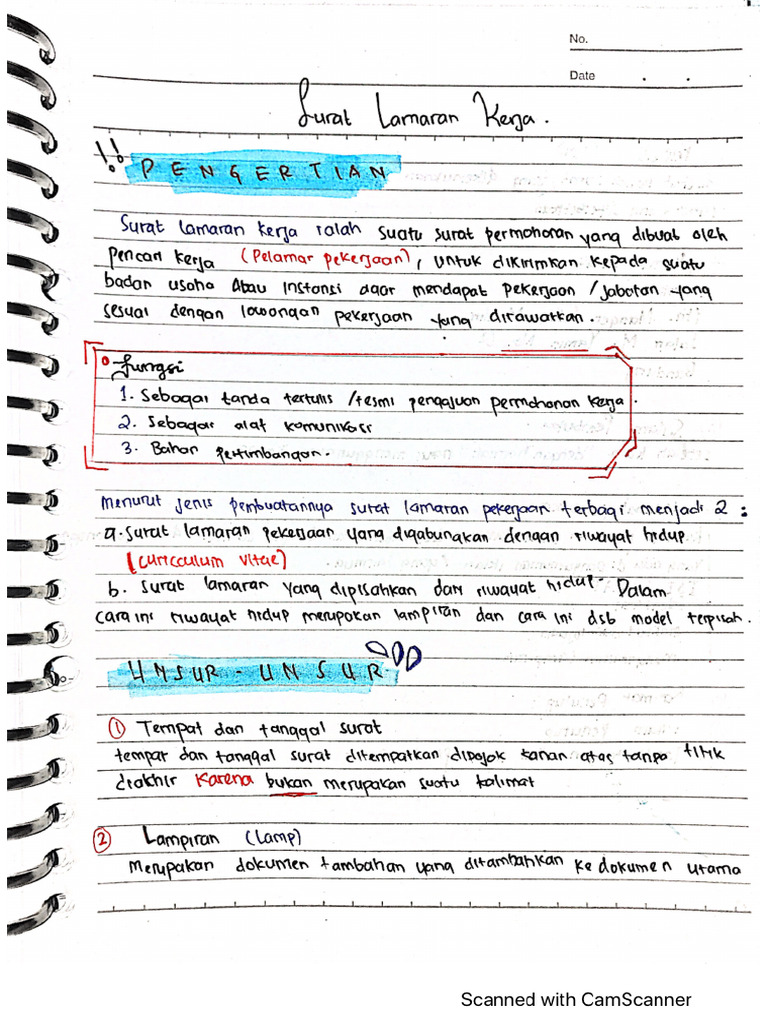 No.
Date . .
Surat Lamaran Kerja.
!! PENGERTIAN
Surat lamaran kerja ialah suatu surat permohonan yang dibuat oleh
pencari kerja (Pelamar pekerjaan), untuk dikirimkan kepada suatu
badan usaha atau instansi agar mendapat pekerjaan / jabatan yang
sesuai dengan lowongan pekerjaan yang ditawatkan.
Fungsi
1. Sebagai tanda tertulis /resmi pengajuan permohonan kerja.
2. Sebagai alat komunikasi
3. Bahan pertimbangan.
menurut jenis pembuatannya surat lamaran pekerjaan terbagi menjadi 2 :
a. surat lamaran pekerjaan yang digabungkan dengan riwayat hidup
(curicculum vitae)
b. surat lamaran yang dipisahkan dari riwayat hidup. Dalam
cara ini riwayat hidup merupakan lampiran dan cara ini dsb model terpisah.
UNSUR - UNSUR
1 Tempat dan tanggal surat
tempat dan tanggal surat ditempatkan dipojok kanan atas tanpa titik
diakhir karena bukan merupakan suatu kalimat
2 Lampiran (lamp)
Merupakan dokumen tambahan yang ditambahkan ke dokumen utama
Scanned with CamScanner